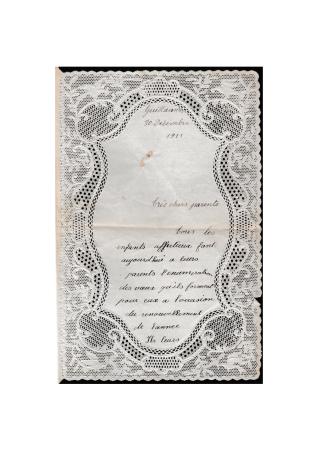 30 Décembre
1911
Très chers parents
Tous les
enfants affectueux font
aujourd'hui a leurs
parents l'énumération
des vœux qu'ils forment
pour eux a l'occasion
du renouvellement
de l'année
Ils leurs